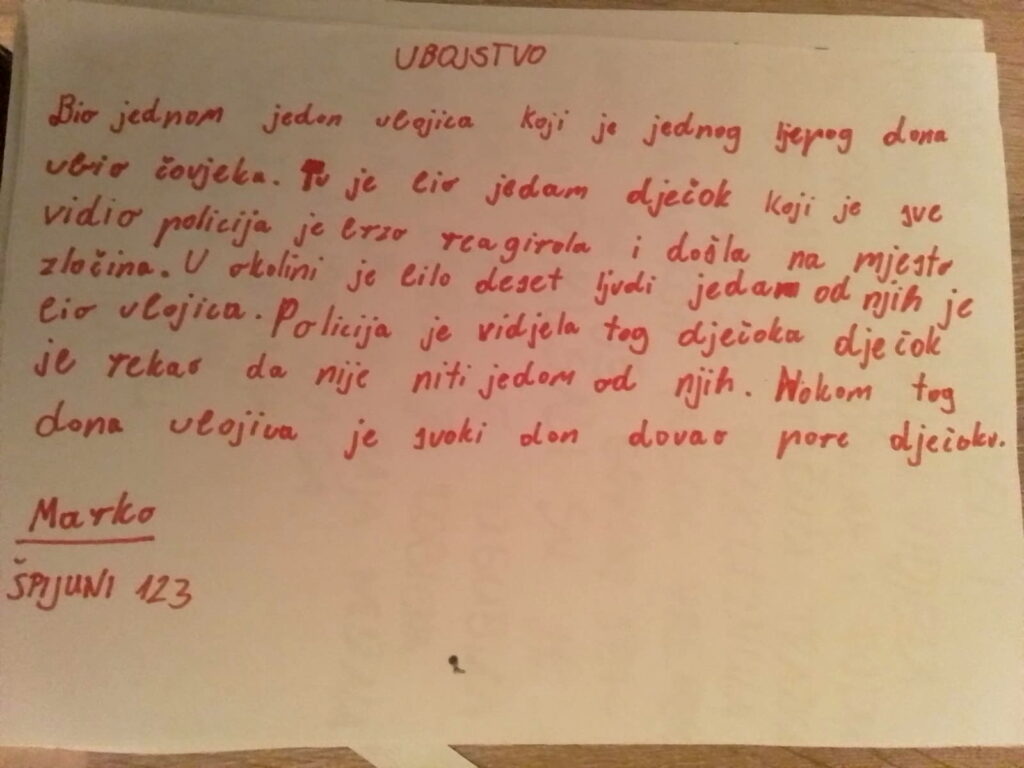 UBOJSTVO
Bio jednom jedan ubojica koji je jednog ljepog dana
ubio čovjeka. Tu je bio jedam dječok koji je sve
vidio policija je brzo reagirala i došla na mjesto
zločina. U okolini je bilo deset ljudi jedam od njih je
bio ubojica. Policija je vidjela tog dječoka dječok
je rekao da nije niti jedom od njih. Nokom tog
dana ubojiva je svaki dan dovao pare dječoku.
Marko
ŠPIJUNI 123